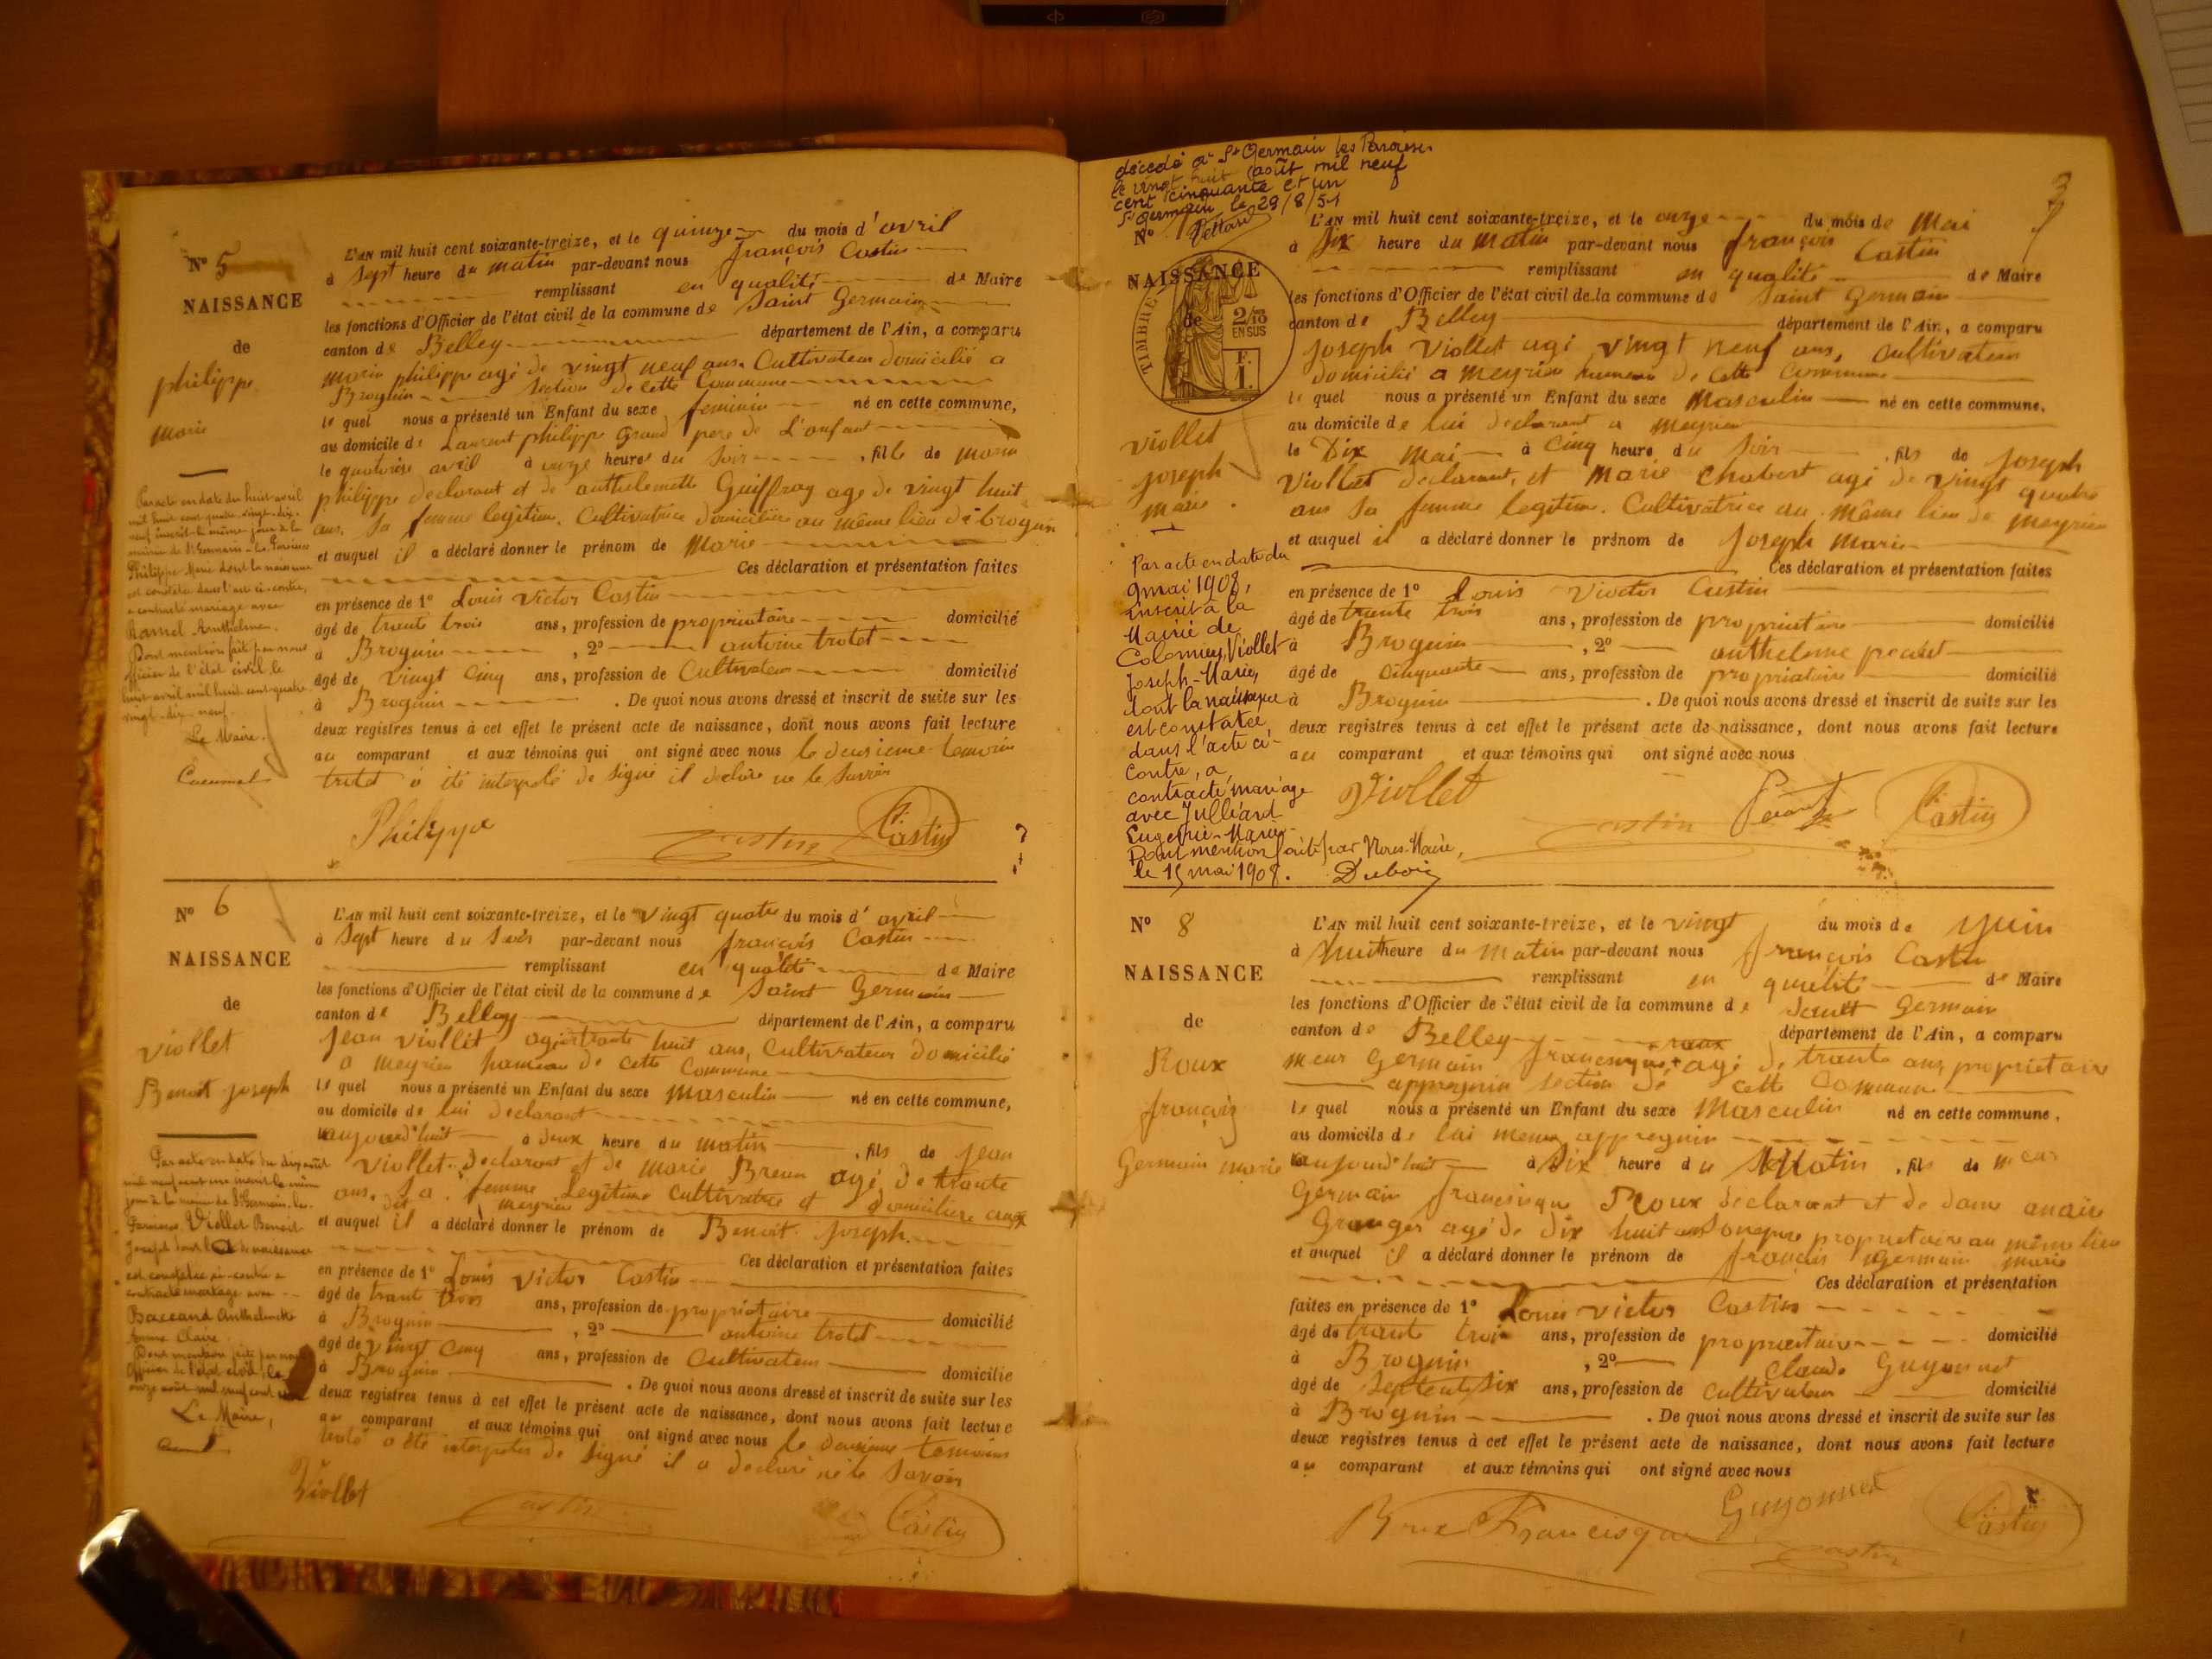 N° 5
NAISSANCE
de
philippe
marie
Par acte en date du huit avril
mil huit cent quatre-vingt-dix-
neuf inscrit le même jour à la
mairie de St Germain-les-Paroisses
Philippe Marie dont la naissance
est constatée dans l'acte ci-contre,
a contracté mariage avec
Ramel Anthelme.
Dont mention faite par nous
officier de l'état civil le
huit avril mil huit cent quatre
vingt-dix-neuf.
Le Maire.
L'AN mil huit cent soixante-treize, et le quinze du mois d'avril
à sept heure du matin par-devant nous françois Castin
remplissant en qualité de Maire
les fonctions d'Officier de l'état civil de la commune de Saint Germain
canton de Belley département de l'Ain, a comparu
marin philippe agé de vingt neuf ans. Cultivateur domicilié a
Brognin section de cette Commune
le quel nous a présenté un Enfant du sexe feminin né en cette commune,
au domicile de Laurent philippe grand pere de L'enfant
le quatorze avril à onze heures du soir, fille de marin
philippe declarant et de anthelmette Guiffray age de vingt huit
ans. Sa femme legitime. Cultivatrice domiciliée au même lieu de brognin
et auquel il a déclaré donner le prénom de Marie
Ces déclaration et présentation faites
en présence de 1° Louis Victor Castin
âgé de trante trois ans, profession de propriettaire domicilié
à Brognin, 2° antoine trolet
âgé de vingt cinq ans, profession de Cultivateur domicilié
à Brognin. De quoi nous avons dressé et inscrit de suite sur les
deux registres tenus à cet effet le présent acte de naissance, dont nous avons fait lecture
au comparant et aux témoins qui ont signé avec nous le deusieme temoin
trolet a été interpelé de signé il declare ne le savoir
Philippe Castin Castin
N° 6
NAISSANCE
de
viollet
Benoit joseph
Par acte en date du dix août
mil neuf cent un inscrit le même
jour à la mairie de St Germain-les-
Paroisses Viollet Benoit
Joseph dont l'acte de naissance
est constatée ci-contre a
contracté mariage avec
Baccand Anthelmette
Jeanne Claire
Dont mention faite par nous
Officier de l'état civil, le
onze août mil neuf cent un
Le Maire,
L'AN mil huit cent soixante-treize, et le vingt quatre du mois d'avril
à Sept heure du soir par-devant nous françois Castin
remplissant en qualité de Maire
les fonctions d'Officier de l'état civil de la commune de Saint Germain
canton de Belley département de l'Ain, a comparu
Jean viollet agé trante huit ans, Cultivateur domicilié
a meyrieu hameau de cette Commune
le quel nous a présenté un Enfant du sexe masculin né en cette commune,
au domicile de lui declarant
aujourd'huit à deux heure du matin, fils de jean
viollet declarant et de marie Breun agé de trante
ans. Sa femme Legitime cultivatre et domiciliere au
dit meyrieu
et auquel il a déclaré donner le prénom de Benoit joseph
Ces déclaration et présentation faites
en présence de 1° Louis Victor Castin
âgé de trante trois ans, profession de propriataire domicilié
à Brognin, 2° antoine trolet
âgé de vingt cinq ans, profession de Cultivateur domicilié
à Brognin. De quoi nous avons dressé et inscrit de suite sur les
deux registres tenus à cet effet le présent acte de naissance, dont nous avons fait lecture
au comparant et aux témoins qui ont signé avec nous le deusieme temoins
trolé a été interpeler de signé il a declaré ne le savoir
Viollet Castin Castin
3
décédé à St Germain les Paroisses
le vingt huit août mil neuf
cent cinquante et un
St Germain le 29/8/51
Nº
NAISSANCE
de
TIMBRE
2/10
EN SUS
F.
1.
viollet
joseph
marie.
Par acte en date du
9 mai 1908,
inscrit à la
Mairie de
Colomieu, Viollet
Joseph-Marie,
dont la naissance
est constatée
dans l'acte ci-
contre, a
contracté mariage
avec Julliard
Eugénie-Marie-
Dont mention faite par Nous-Maire,
le 15 mai 1908. Dubois
L'AN mil huit cent soixante-treize, et le onze du mois de Mai
à Six heure du matin par-devant nous françois Castin
remplissant en qualité de Maire
les fonctions d'Officier de l'état civil de la commune de Saint Germain
canton de Belley département de l'Ain, a comparu
joseph viollet agé vingt neuf ans, cultivateur
domicilié a meyrieu hameau de cette Commune
le quel nous a présenté un Enfant du sexe Masculin né en cette commune,
au domicile de lui declarant a meyrieu
le Dix mai à cinq heure du soir, fils de joseph
Viollet declarant, et Marie Chabert agé de vingt quatre
ans sa femme legitime. Cultivatrice au même lieu de meyrieu
et auquel il a déclaré donner le prénom de joseph marie
Ces déclaration et présentation faites
en présence de 1° Louis Vioctor Castin
âgé de trante trois ans, profession de propriettaire domicilié
à Brognin, 2° anthelme
âgé de cinquante ans, profession de propriataire domicilié
à Brognin. De quoi nous avons dressé et inscrit de suite sur les
deux registres tenus à cet effet le présent acte de naissance, dont nous avons fait lecture
au comparant et aux témoins qui ont signé avec nous
Viollet Castin Castin
N° 8
NAISSANCE
de
Roux
françois
Germain marie
L'AN mil huit cent soixante-treize, et le vingt du mois de juin
à huit heure du matin par-devant nous françois Castin
remplissant en qualité de Maire
les fonctions d'Officier de l'état civil de la commune de Saint Germain
canton de Belley département de l'Ain, a comparu
roux
meur Germain francisque agé de trante ans propriétaire
appregnin section de cette Commune
le quel nous a présenté un Enfant du sexe Masculin né en cette commune.
au domicile de lui meme appregnin
aujourd'huit à six heure du Matin, fils de meur
Germain francisque Roux declarant et de dame anaïs
Granger agé de dix huit ans propriétaire au même lieu
et auquel il a déclaré donner le prénom de françois Germain marie
Ces déclaration et présentation
faites en présence de 1° Louis victor Castin
âgé de trante trois ans, profession de propriettaire domicilié
à Brognin, 2° Claude Guyonnet
âgé de septente six ans, profession de cultivateur domicilié
à Brognin. De quoi nous avons dressé et inscrit de suite sur les
deux registres tenus à cet effet le présent acte de naissance, dont nous avons fait lecture
au comparant et aux témoins qui ont signé avec nous
Roux Francisque Guyonnet Castin Castin